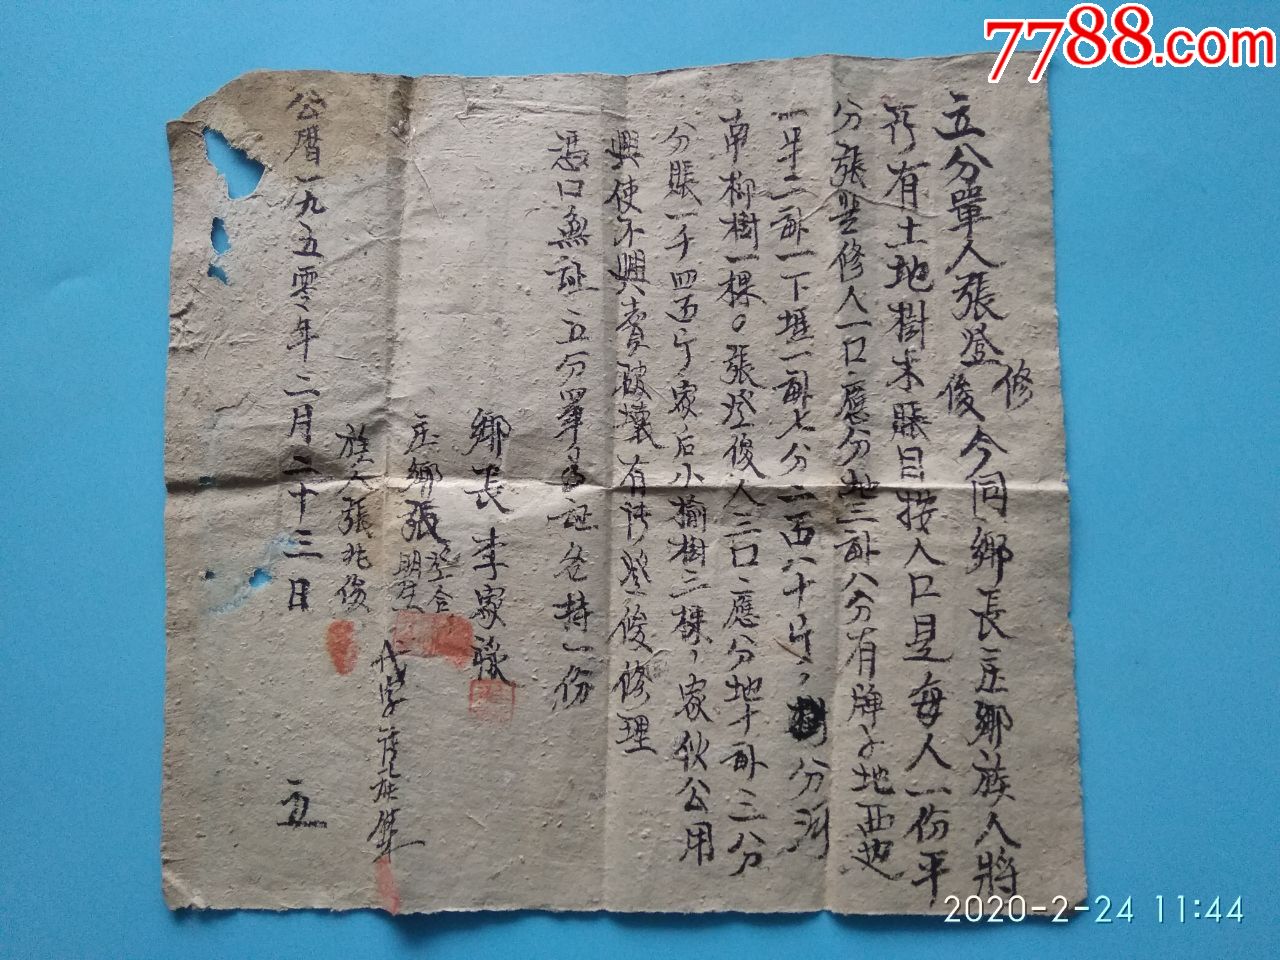 7788.com
立分單人張登修後今同鄉長庄鄉族人將
所有土地樹木賬目按人口是每人一份平
分張登修人一口應分地三畝八分有牌子地西边
一半二畝一下堐一畝七分二百八十斤，樹分河
南柳樹一棵。張登俊人三口應分地十畝三分
分賬一千四百斤家后小榆樹三棵，家伙公用
興使不興賣破壞有登俊修理
憑口無証立分單為証各持一份
鄉長李家
庄鄉張登合明
族人張兆俊
代字
公曆一九五零年二月二十三日 立
2020-2-24 11:44